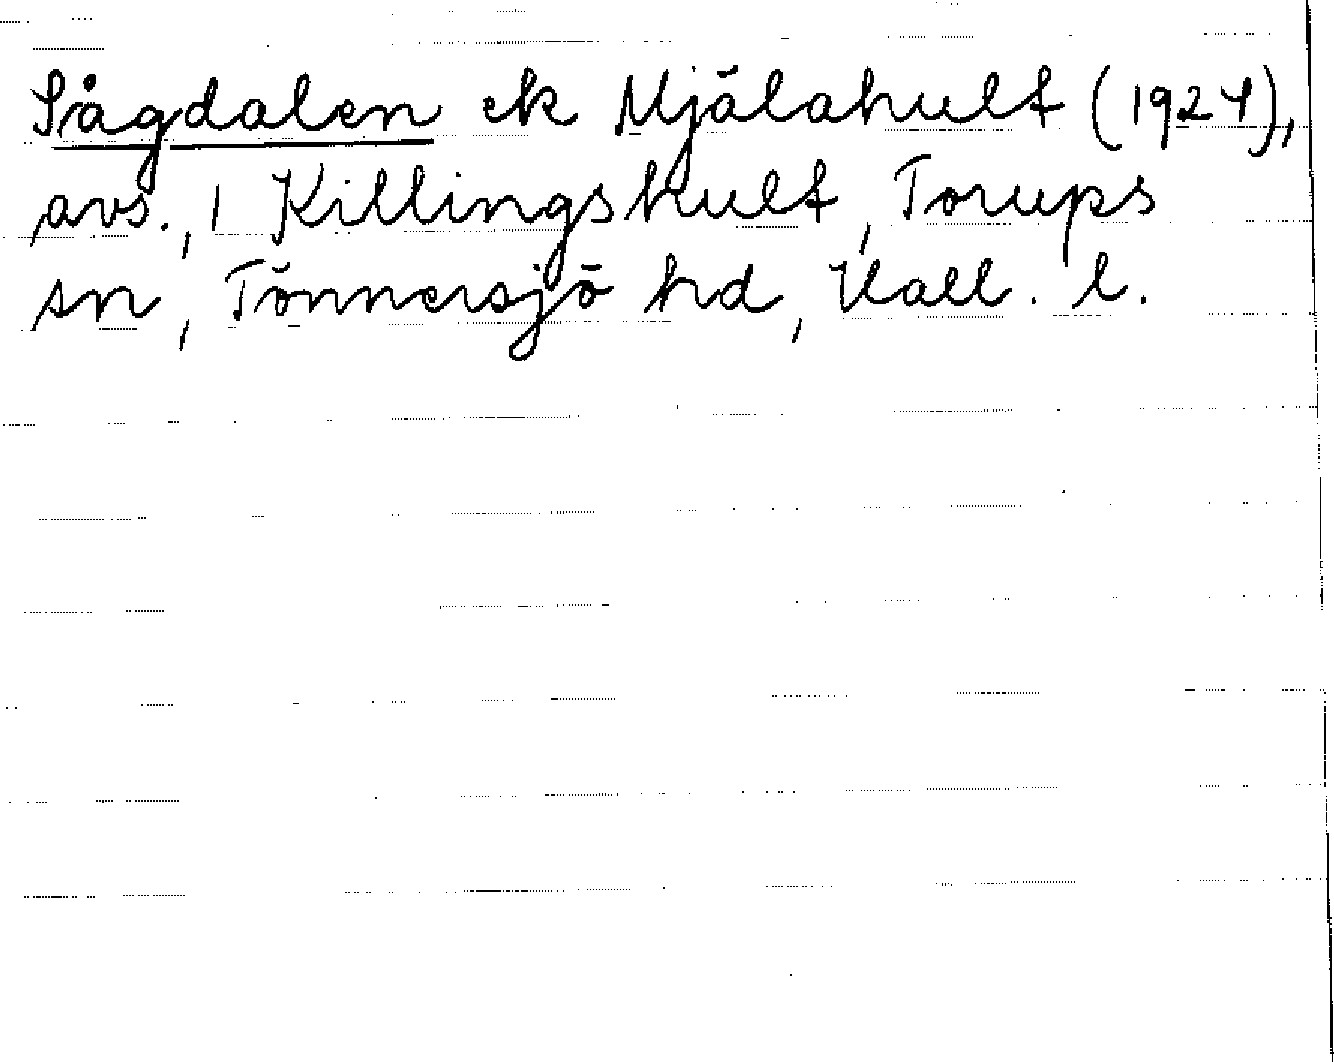 Sågdalen ek Mjälahult (1927),
avs., 1 Killingshult, Torups
sn, Tönnersjö hd, Hall. l.